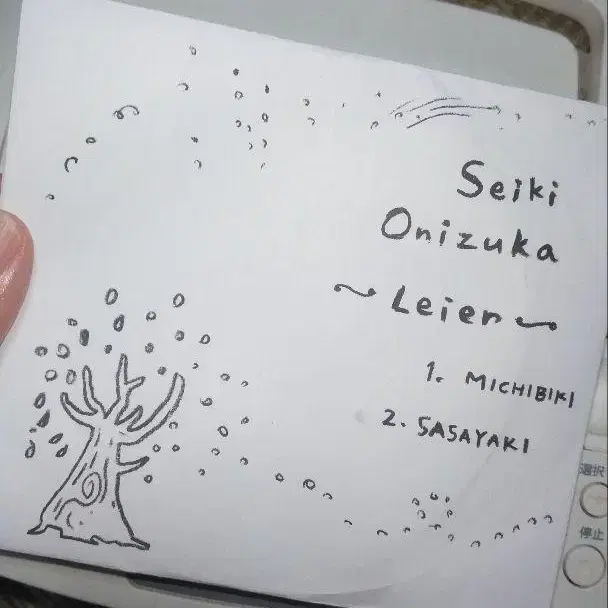 Seiki
Onizuka
~ Leier ~
1. MICHIBIKI
2. SASAYAKI
選択
停止